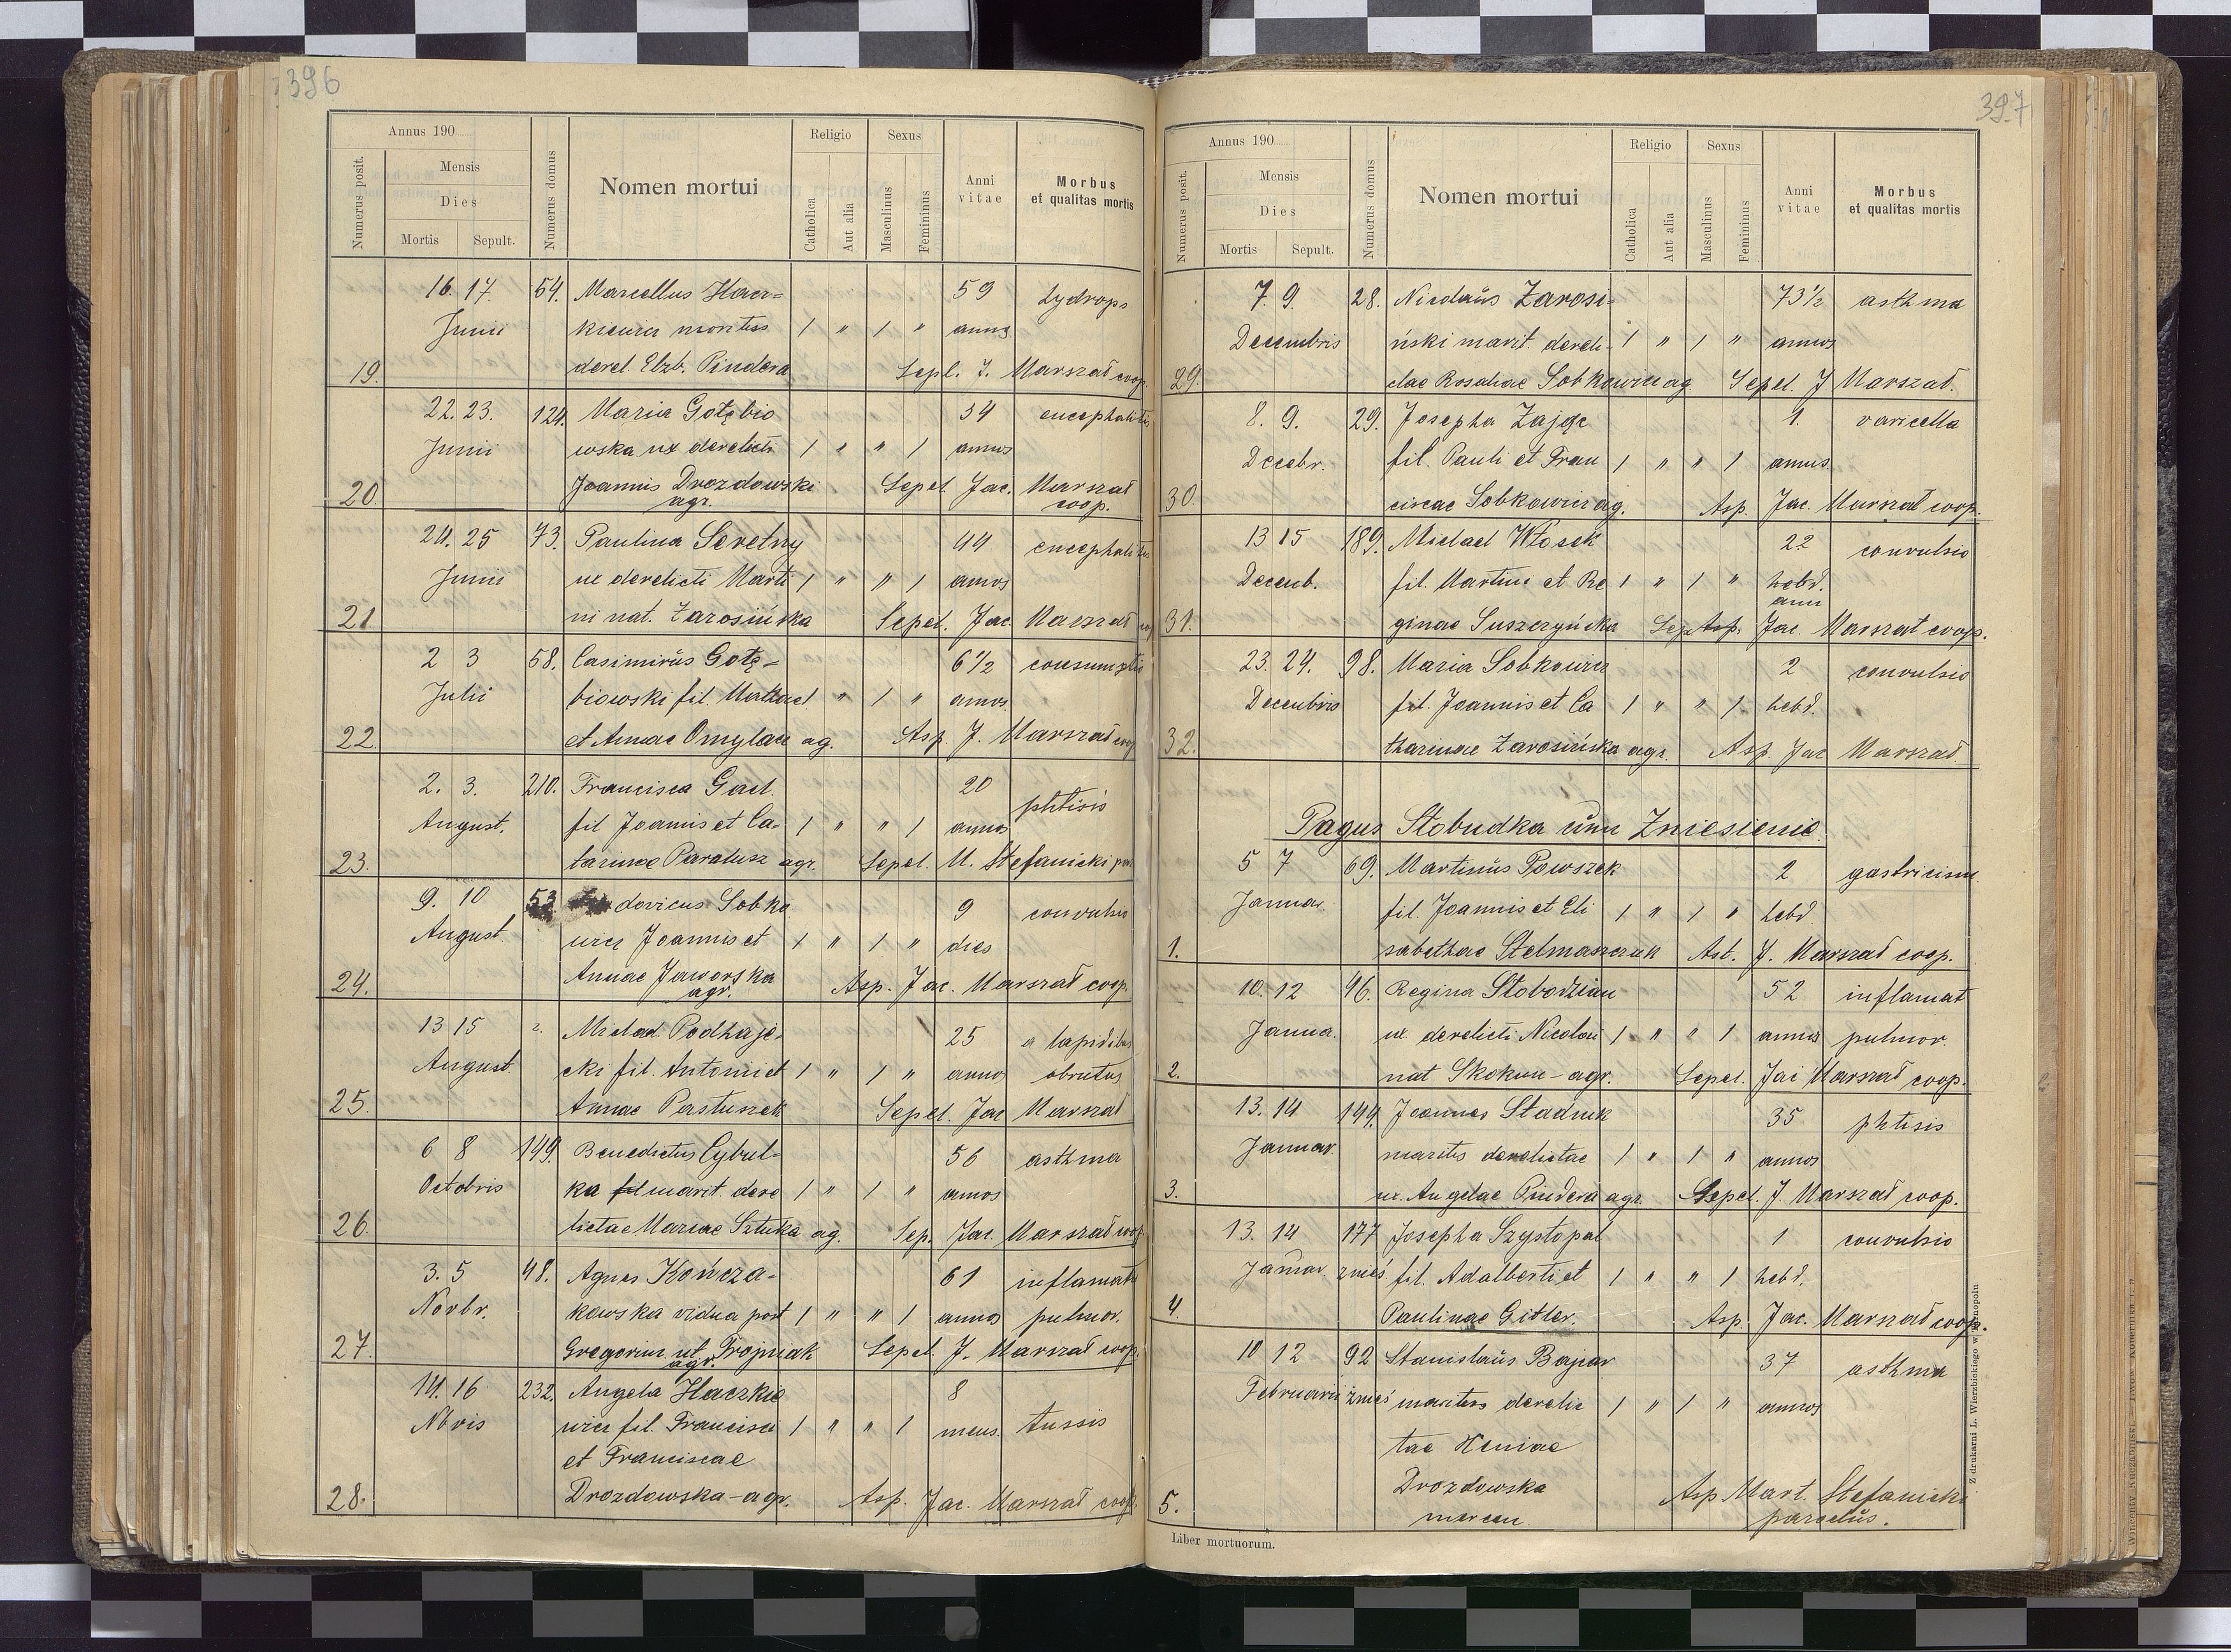 396
Annus 190
Numerus posit.
Mensis
Dies
Mortis Sepult.
Numerus domus
Nomen mortui
Religio
Catholica
Aut alia
Sexus
Masculinus
Femininus
Anni vitae
Morbus et qualitas mortis
16. 17. 54. Marcellus Hacz= 59 hydrops
Junii kiewicz maritus 1 " 1 " annos
19. derel. Elzb. Pindera Sepel. J. Marszał coop.
22. 23. 124. Maria Gołębio 54 encephalitis
Junii wska ux derelicti 1 " " 1 annos
20. Joannis Drozdowski Sepel. Jac. Marszał
agr. coop.
24. 25 73. Paulina Seretny 44 encephalitis
Junii ux derelicti Marti 1 " " 1 annos
21. ni nat. Zarosińska Sepel. Jac. Marszał
2 3 58. Casimirus Gołę= 6 1/2 consumptio
Julii biowski fil. Mathaei 1 " 1 " annos
22. et Annae Omylan ag. Asp. J. Marszał coop
2. 3. 210. Francisca Gael 20 phtisis
August. fil Joannis et Ca= 1 " " 1 annos
23. tarinae Paralusz agr. Sepel. M. Stefanicki
9. 10 53 dovicus Sobko 9 convulsio
August. wicz Joannis et 1 " 1 " dies
24. Annae Jaworska Asp. Jac. Marszał coop.
agr.
13 15 2. Michael Podhaje= 25 a lapidibus
August. cki fil. Antonii et 1 " 1 " annos obrutus
25. Annae Pastuszek Sepel. Jac Marszał
6 8 149. Benedictus Cybul= 56 asthma
Octobris ka fil marit. dere 1 " 1 " annos
26. lictae Mariae Sztuka ag. Sep. Jac. Marszał coop.
3. 5 48. Agnes Kończa- 61 inflamatio
Novbr. kowska vidua post 1 " " 1 annos pulmor.
27. Gregorium ut Trojniak Sepel. J. Marszał coop.
agr.
14. 16 232. Angela Haczkie 8
Nbvis wicz fil. Francisci 1 " " 1 mens. tussis
et Franciscae
28. Drozdowska - agr. Asp. Jac. Marszał coop.
397
Annus 190
Numerus posit.
Mensis
Dies
Mortis Sepult.
Numerus domus
Nomen mortui
Religio
Catholica
Aut alia
Sexus
Masculinus
Femininus
Anni vitae
Morbus et qualitas mortis
7. 9. 28. Nicolaus Zarosi= 73 1/2 asthma
Decembris ński marit. dereli- 1 " 1 " annos
29. ctae Rosaliae Sobkowicz ag Sepel. J Marszał.
8. 9. 29. Josepha Zając 1. varicella
Decebr. fil. Pauli et Fran 1 " " 1 annus.
30. ciscae Sobkowicz ag. Asp. Jac. Marszał coop.
13 15 189. Michael Włosek 22 convulsio
Decemb. fil. Martini et Re 1 " 1 " hebd.
31. ginae Suszczyńska Sep Asp. Jac. Marszał coop.
23. 24. 98. Maria Sobkowicz 2 convulsio
Decembris fil. Joannis et Ca 1 " " 1 hebd.
32. tharinae Zarosińska agr. Asp. Jac Marszał.
Pagus Słobudka cum Zniesienie.
5 7 69. Martinus Powszek 2 gastricism
Januar. fil. Joannis et Eli 1 " 1 " hebd.
1. sabethae Stelmaszczuk Ast. J. Marszał coop.
10. 12 46. Regina Słobodzian 52 inflamat
Janua. ux derelicti Nicolai 1 " " 1 annos pulmor.
2. nat Skokun - agr. Sepel. Jac Marszał coop.
13. 14 144. Joannes Stadnik 35 phtisis
Januar. maritus derelictae 1 " 1 " annos
3. ux. Angelae Pindera agr. Sepel. J. Marszał coop.
13. 14 177 Josepha Szystopal 1 convulsio
Januar. znieś fil. Adalberti et 1 " " 1 hebd.
4. Paulinae Gitler. Asp. Jac. Marszał coop.
10 12 92 Stanislaus Bajcar 37 asthma
Februarii znieś maritus derelic 1 " 1 " annos
tae Xeniae
5. Drozdowska Asp Mart. Stefanicki
parochus.
Liber mortuorum.
Z drukarni L. Wierzbickiego w Tarnopolu